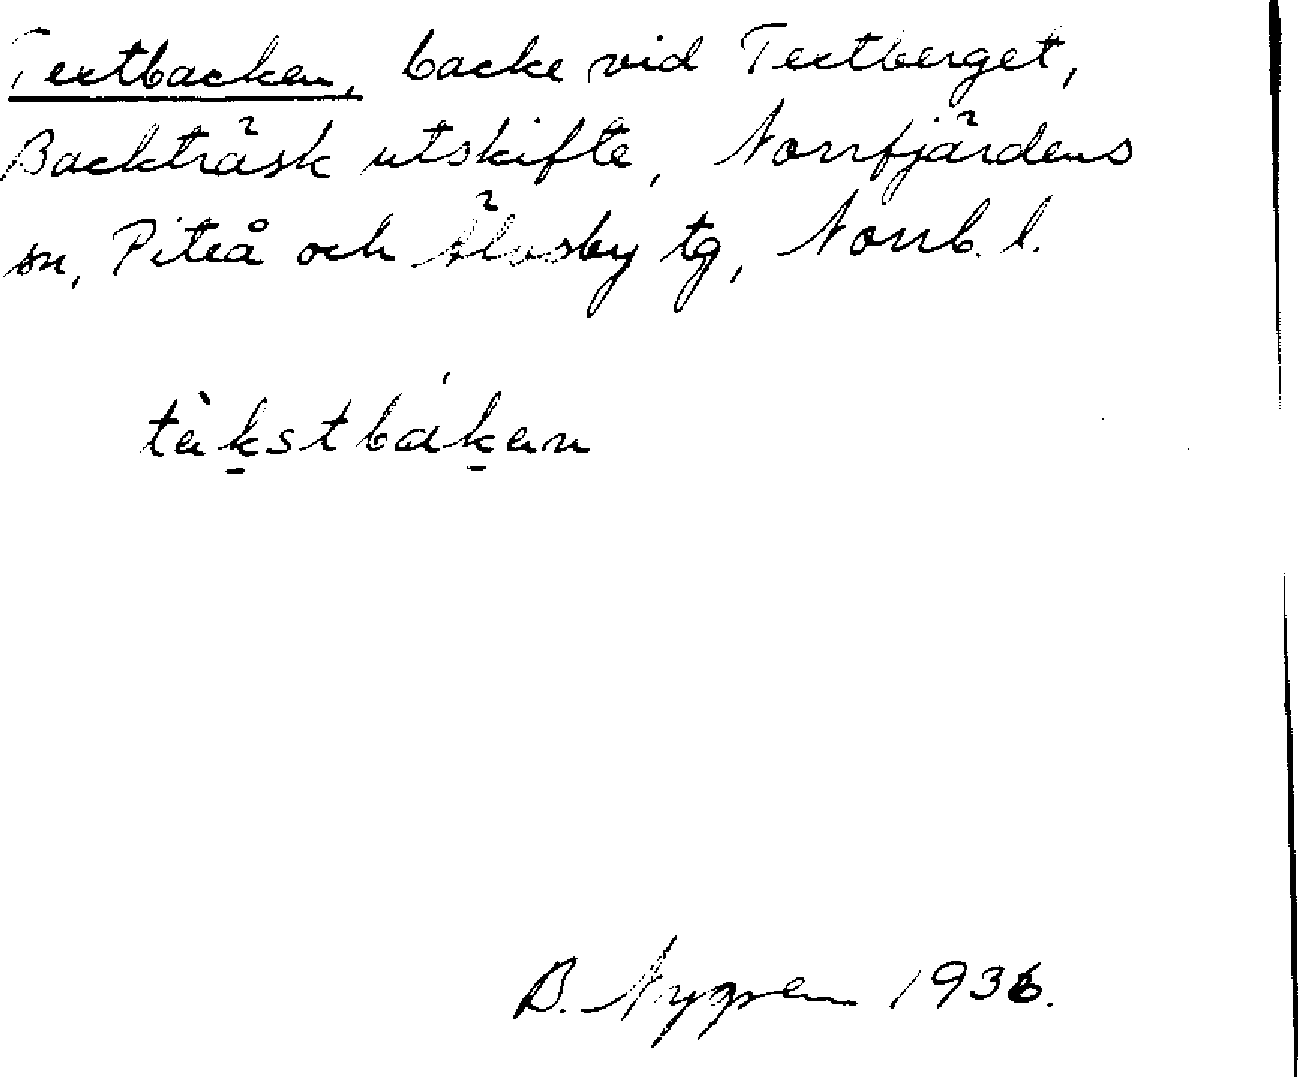 Textbacken, backe vid Textberget,
Backträsk utskifte, Norrfjärdens
sn, Piteå och Älvsby tg, Norrb. l.
tèkstbákan
B. Nygren 1936.